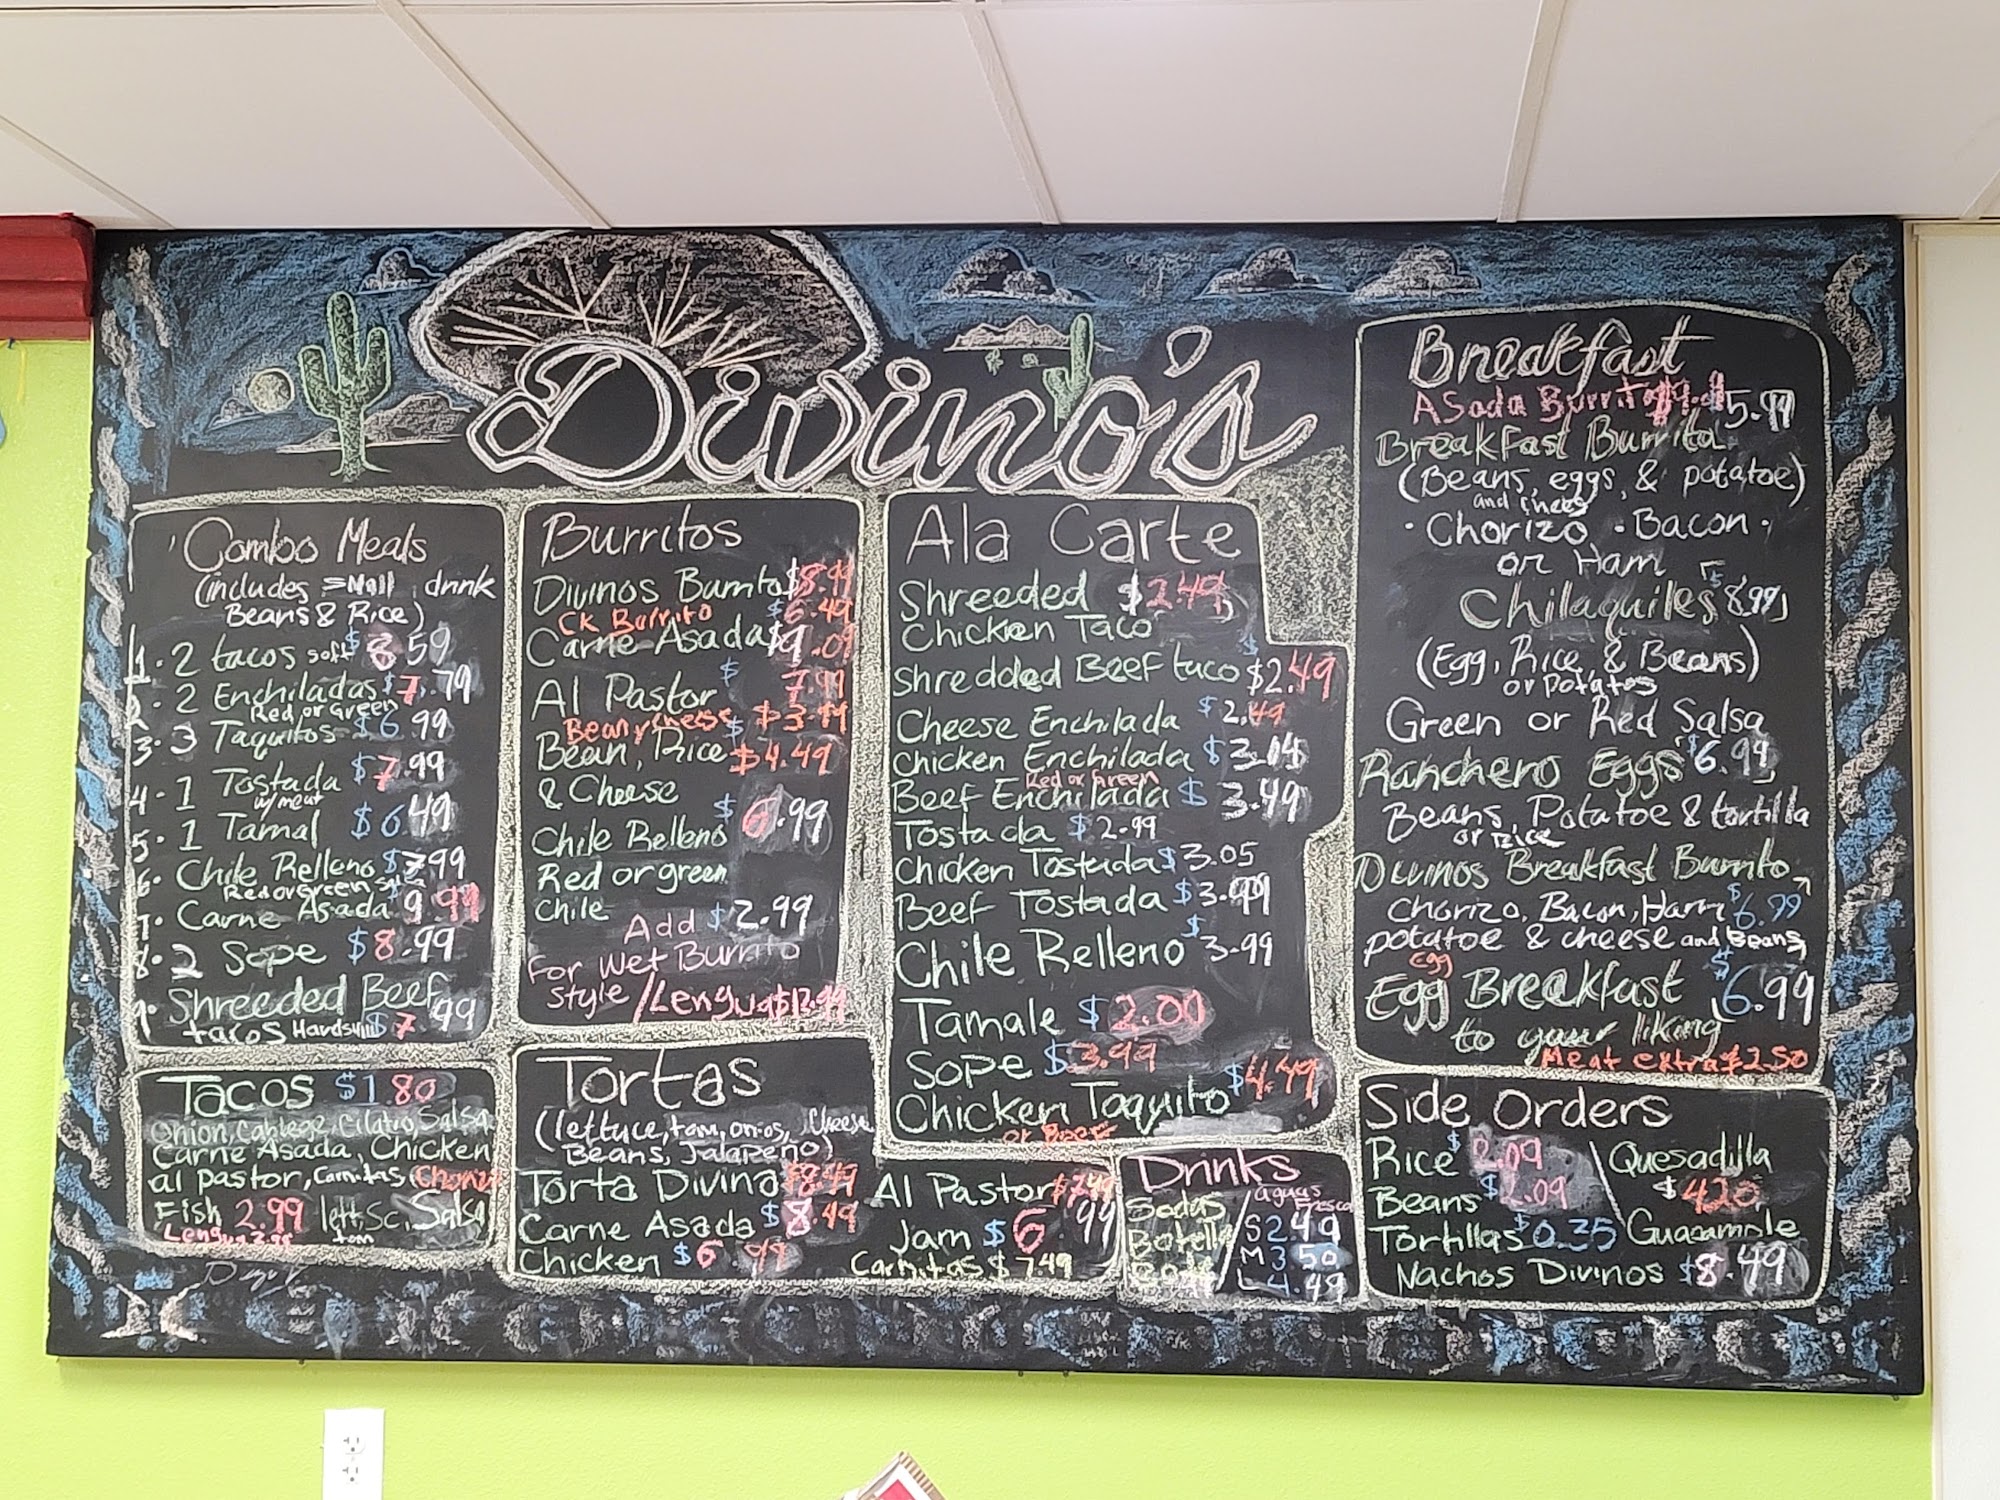 Divino's
Combo Meals
(includes small drink
Beans & Rice)
1. 2 tacos soft $8.59
2. 2 Enchiladas $7.79
Red or Green
3. 3 Taquitos $6.99
4. 1 Tostada $7.99
w/meat
5. 1 Tamal $6.49
6. Chile Relleno $7.99
Red or Green
7. Carne Asada 9.99
8. 2 Sope $8.99
9. Shreeded Beef
tacos Hardshell $7.99
Tacos $1.80
onion, cabbage, cilatro, Salsa
Carne Asada, Chicken
al pastor, Carnitas,
Fish 2.99 lett, Sc, Salsa
tom
Lengua 2.99
Burritos
Divinos Burrito $8.99
CK Burrito $6.49
Carne Asada $9.09
Al Pastor $7.99
Bean y cheese $3.99
Bean, Rice $4.49
& Cheese
Chile Relleno $6.99
Red or green
Chile
Add $2.99
For Wet Burrito
Style / Lengua
Tortas
(lettuce, tom, onios, Cheese
Beans, Jalapeño)
Torta Divino $8.49
Carne Asada $8.49
Chicken $6.99
Al Pastor $7.49
Jam $6.99
Carnitas $7.49
Ala Carte
Shreeded $2.49
Chicken Taco
Shredded Beef taco $2.49
Cheese Enchilada $2.49
Chicken Enchilada
Red or Green
Beef Enchilada $3.49
Tostada $2.99
Chicken Tostada $3.05
Beef Tostada $3.99
Chile Relleno $3.99
Tamale $2.00
Sope $3.99
Chicken Taquito $4.49
or Beef
Drinks
Sodas
Botella
aguas
Fresca
S 2.49
M 3.50
L 4.49
Breakfast
Asada Burrito $5.99
Breakfast Burrito
(Beans, eggs, & potatoe)
and cheese
· Chorizo · Bacon ·
or Ham
Chilaquiles $8.99
(Egg, Rice, & Beans)
or potatos
Green or Red Salsa
Ranchero Eggs $6.99
Beans, Potatoe & tortilla
or Rice
Divinos Breakfast Burrito
Chorizo, Bacon, Ham $6.99
potatoe & cheese and Beans
Egg
Egg Breakfast $6.99
to your liking
Meat extra $2.50
Side Orders
Rice $2.09
Beans $2.09
Tortillas $0.35
Quesadilla
$4.20
Guacamole
Nachos Divinos $8.49